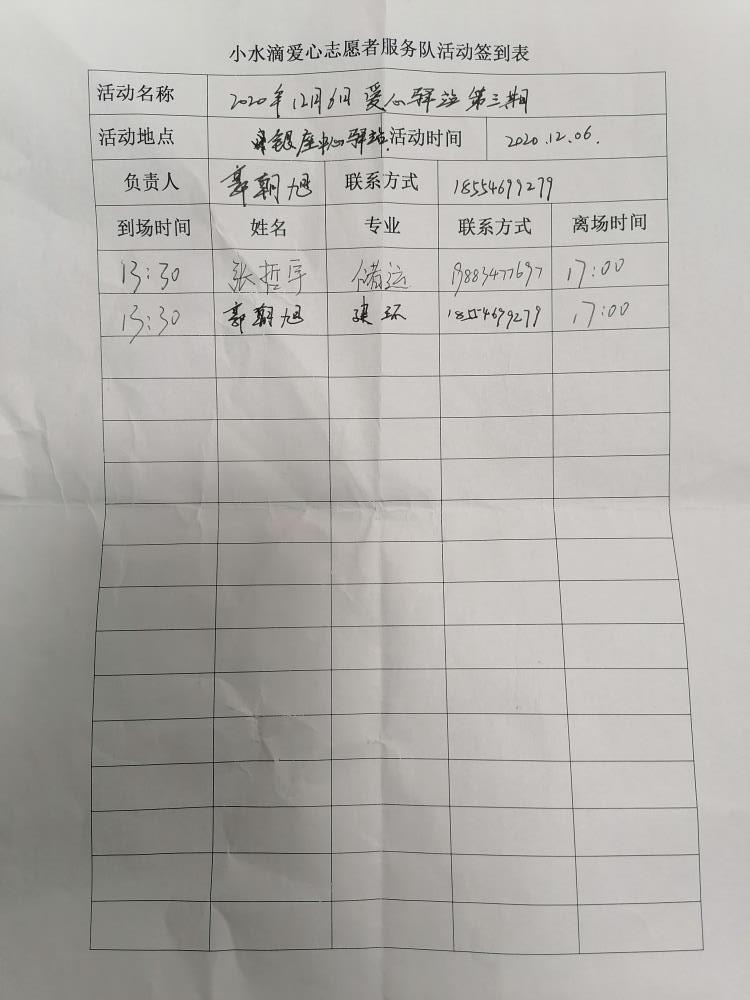 小水滴爱心志愿者服务队活动签到表
活动名称 2020年12月6日 爱心驿站 第三期
活动地点 银座中心驿站 活动时间 2020.12.06.
负责人 郭朝旭 联系方式 18554699279
到场时间 姓名 专业 联系方式 离场时间
13:30 张哲宇 储运 19883477697 17:00
13:30 郭朝旭 建环 18554699279 17:00